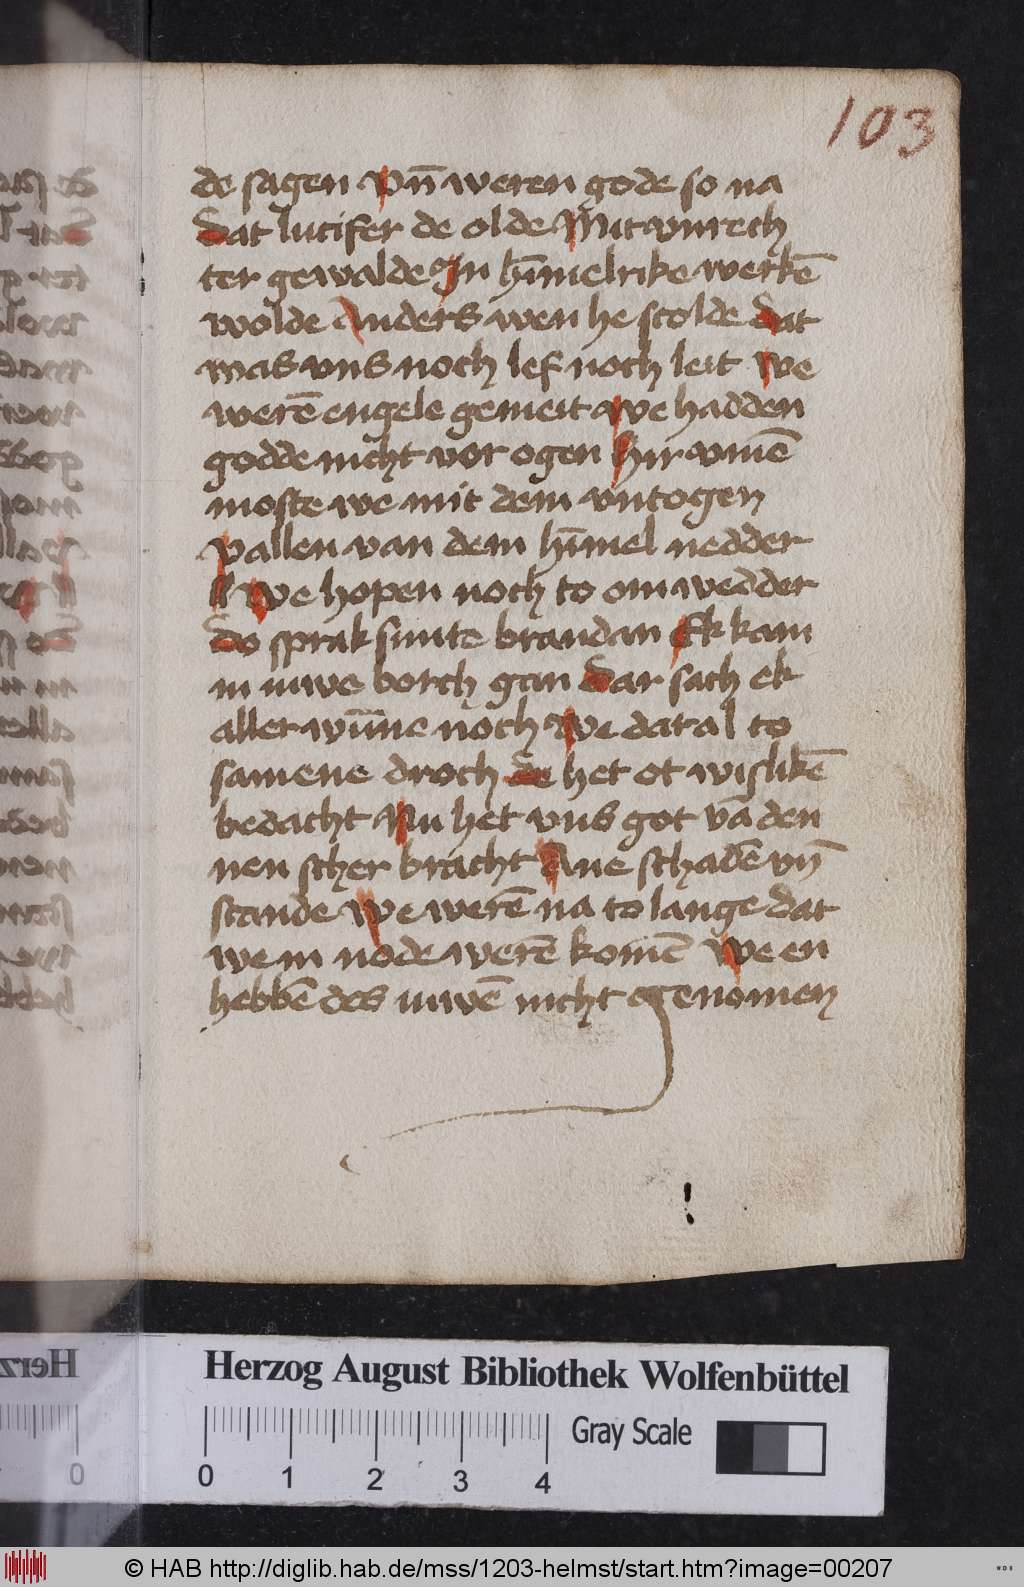 103
de sagen vn̄ weren gode so na
dat lucifer de olde Mit vnrech
ter gewalde In hīmelrike werkē
wolde Anders wen he scolde dat
was vns noch lef noch leit we
werē engele gemeit we hadden
godde nicht vor ogen hir vmē
moste we mit dem vntogen
vallen van dem hīmel nedder
we hopen noch to om wedder
do sprak sunte brandan Ek kam
in iuwe borch gan dar sach ek
aller wūne noch we dat al to
samene droch de het ot wislikē
bedacht Nu het vns got vā den
nen scher bracht Ane schadē vn̄
scande we werē na to lange dat
we in node werē komē we en
hebbē des iuwē nicht genomen
Herzog August Bibliothek Wolfenbüttel
Gray Scale
0 1 2 3 4
© HAB http://diglib.hab.de/mss/1203-helmst/start.htm?image=00207